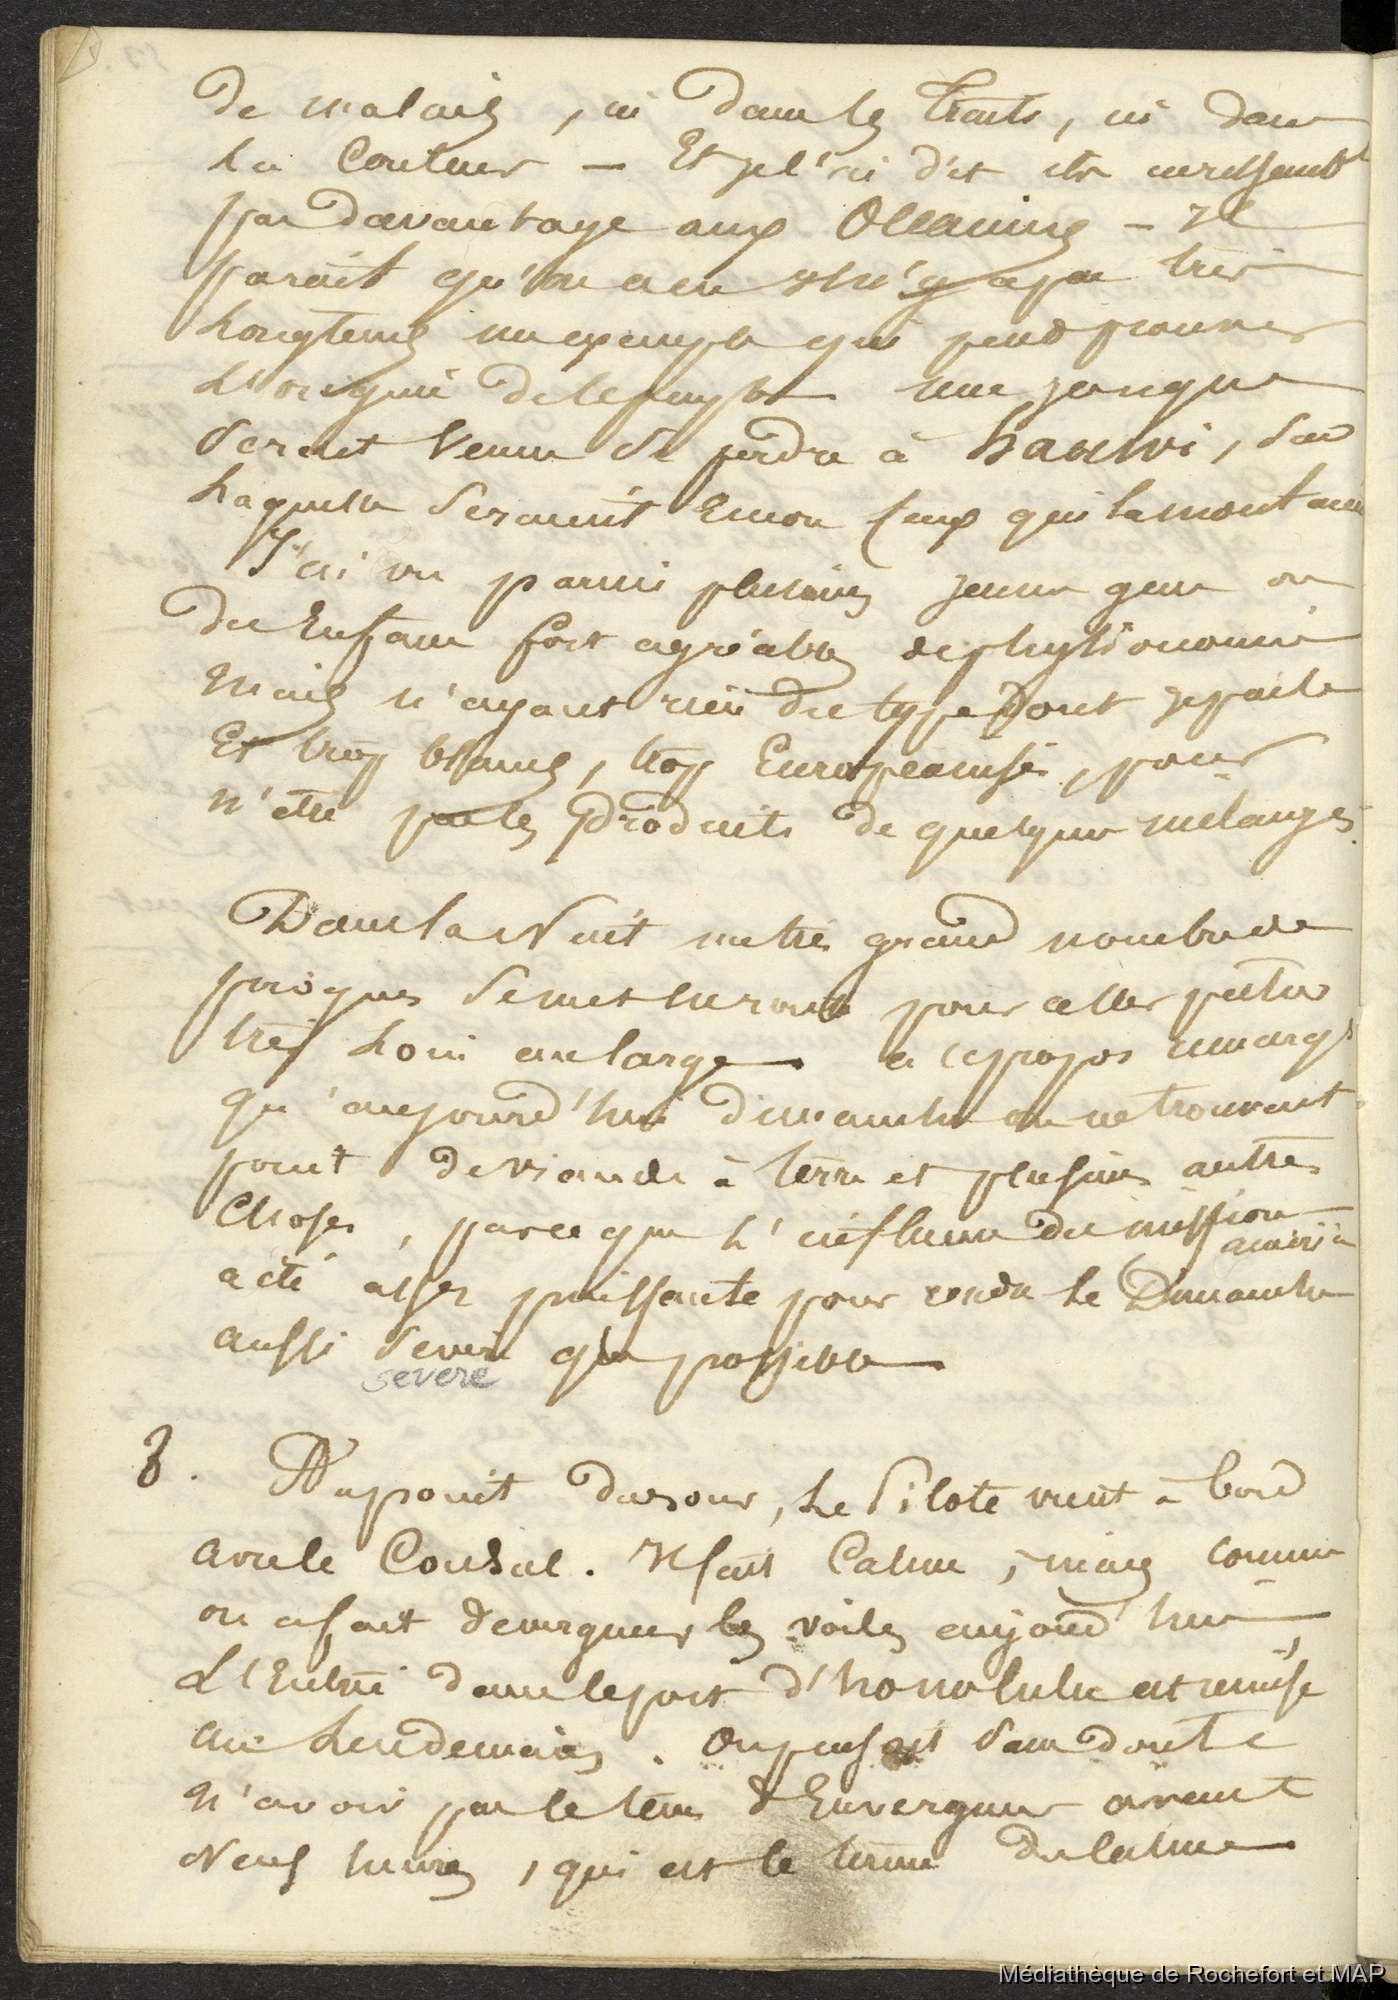 de malais, ni dans les traits, ni dans
la Couleur — Et je l'ai dit ils ne ressembt
pas davantage aux Océaniens — Il
parait qu'on a eu il n'y a pas très
longtems un exemple qui peut prouver
l'origine de le peuple une jonque
serait venue se perdre à hawai, sur
laquelle seraient encore ceux qui la montaient
J'ai vu parmi plusieurs jeunes gens ou
des Enfans fort agréables de physionomie
mais n'ayant rien du type dont je parle
Et trop blancs, trop Européanisés, pour
n'être pas les produits de quelques mélanges.
Dans la Nuit un très grand nombre de
pirogues se met en route pour aller pêcher
très loin au large a ce propos remarqr
qu'aujourd'hui dimanche on ne trouvait
point de viande à terre et plusieurs autres
Choses, parce que l'influence des mission
américn
a été assez puissante pour rendre le Dimanche
aussi severe que possible
severe
8. Au point du jour, le Pilote vient à bord
avec le Consul. Il fait Calme, mais comme
on a fait deverguer les voiles aujourd'hui
L'Entrée dans le port d'honolulu est remise
au lendemain. on pensait sans doute
n'avoir pas le tems d'Enverguer avant
Neuf heures, qui est le terme du calme